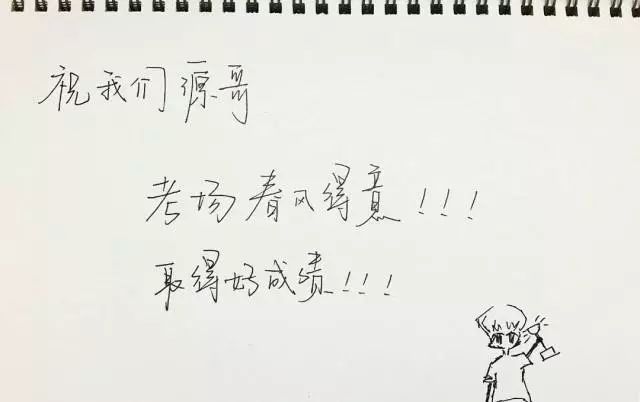 祝我们源哥
考场春风得意!!!
取得好成绩!!!